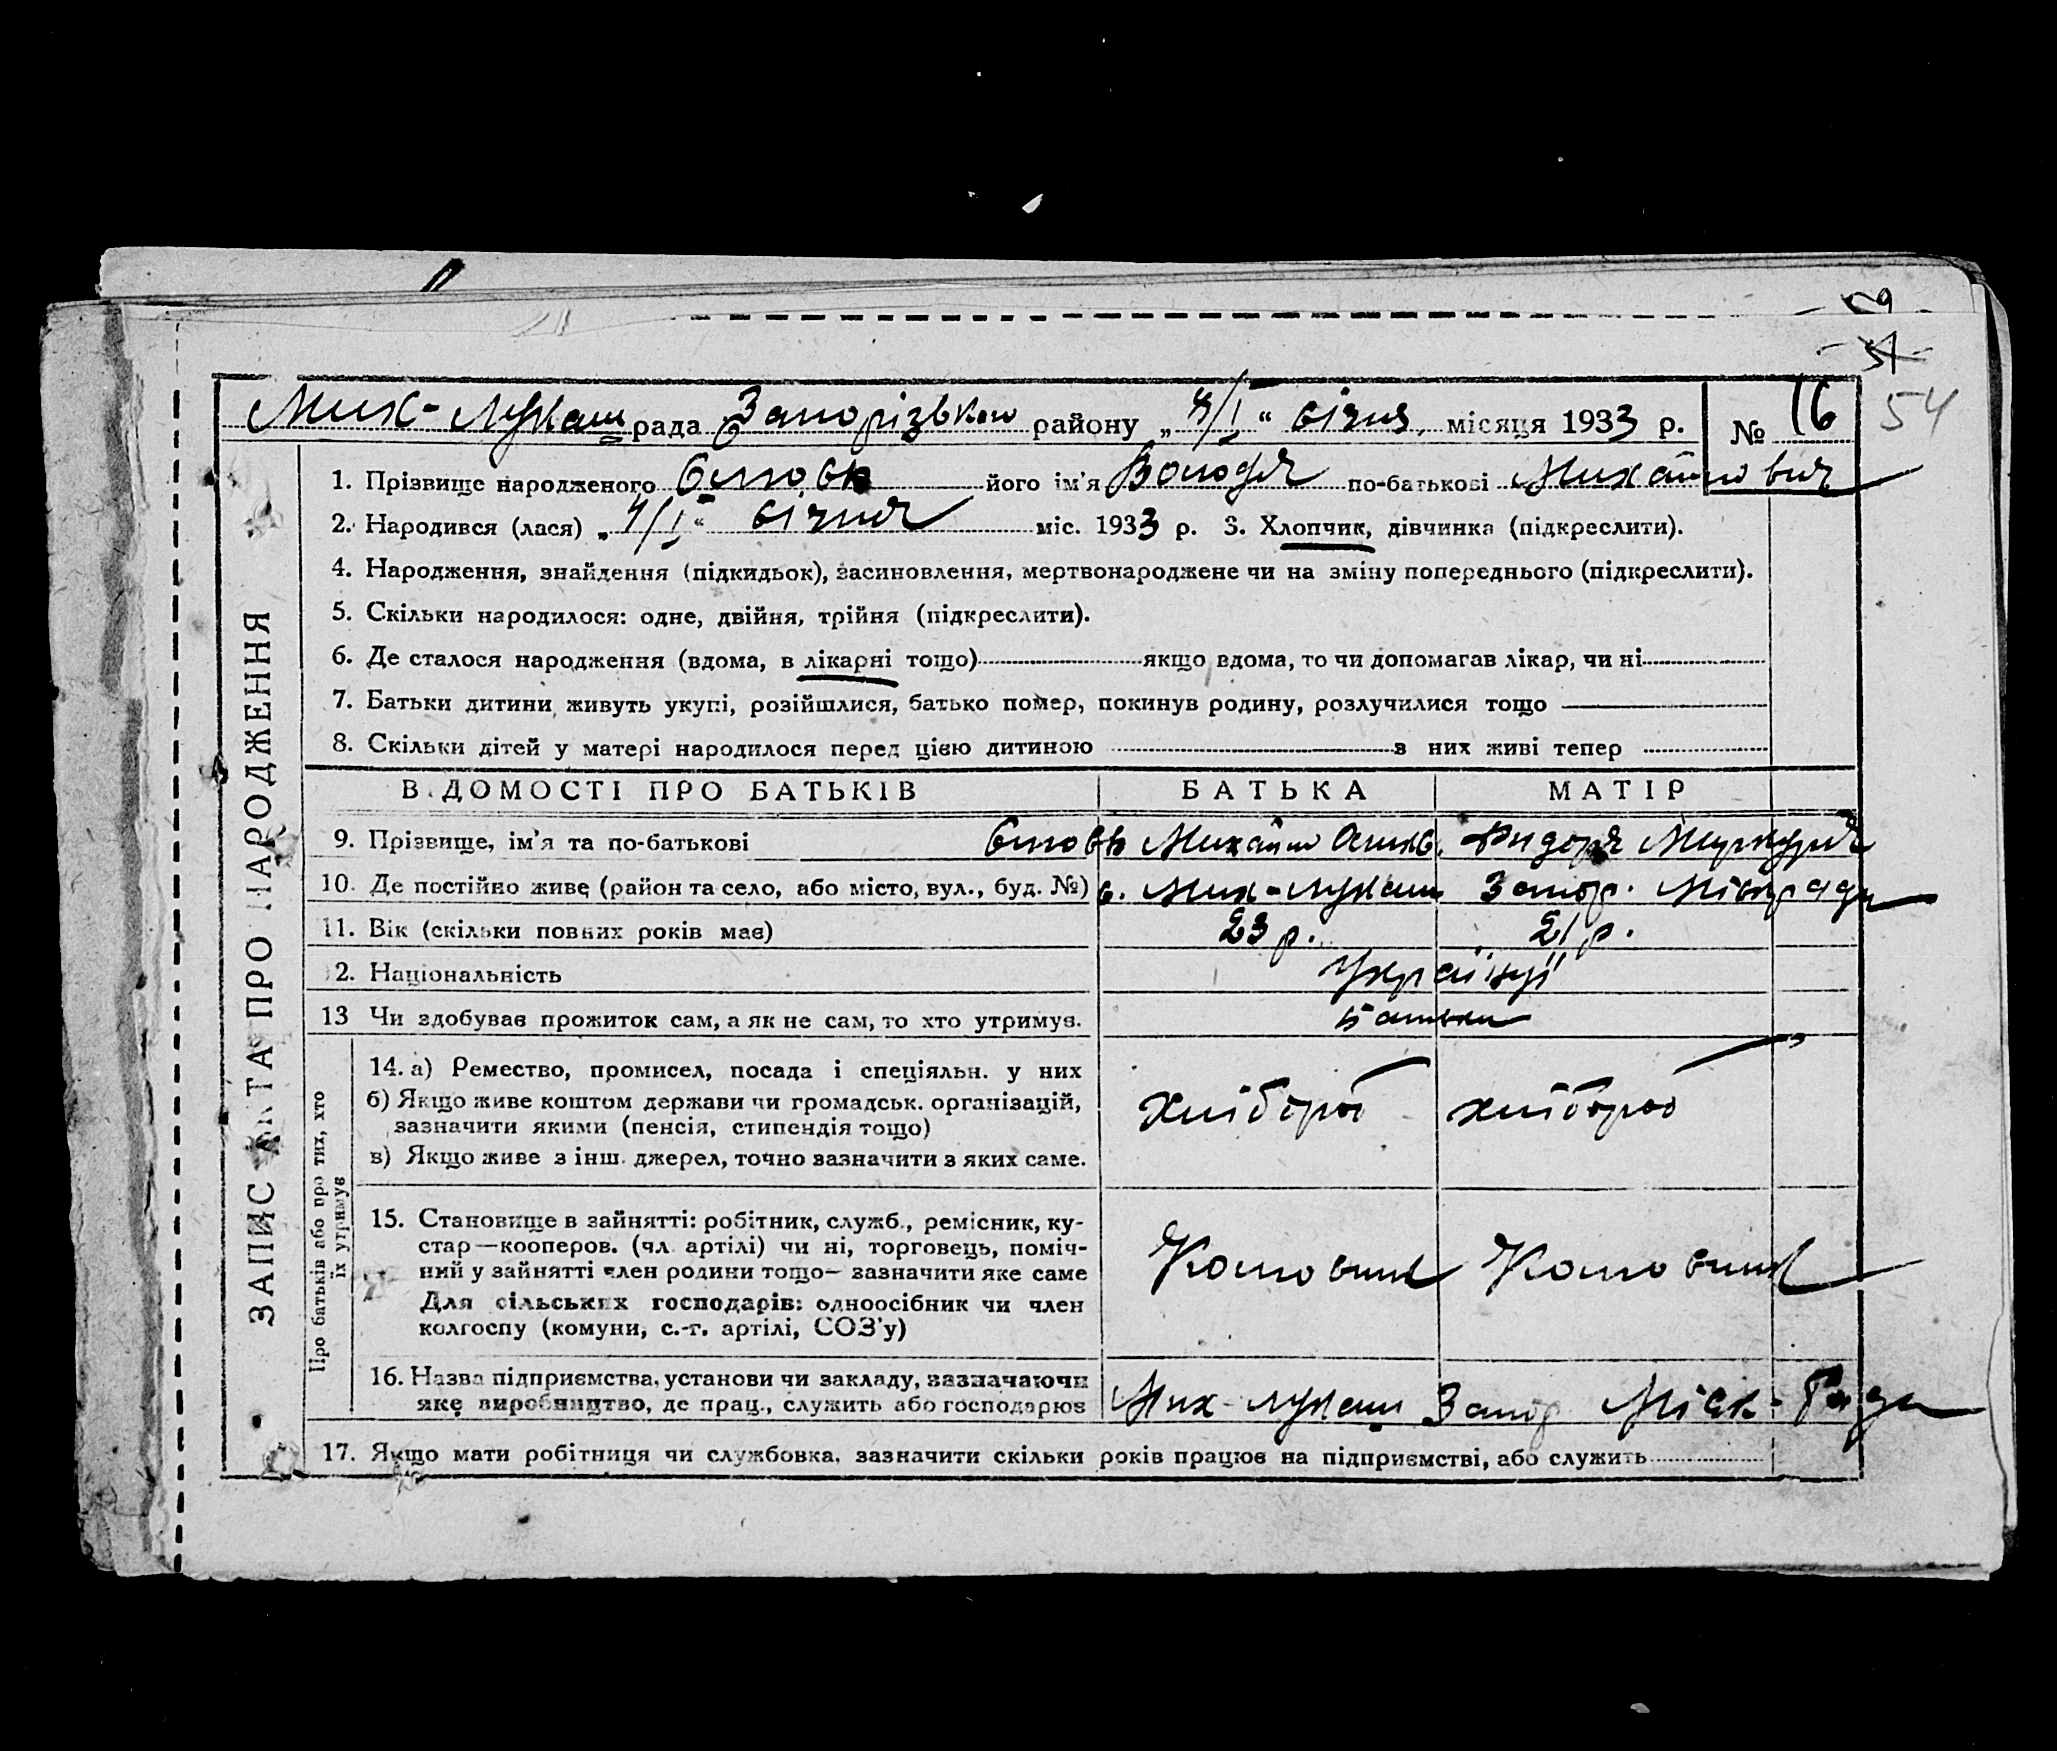 54
Мих-Лукаш рада Запорізького району „4/I“ січня місяця 1933 р. № 16
ЗАПИС АКТА ПРО НАРОДЖЕННЯ
1. Прізвище народженого його ім'я Володя по-батькові Михайлович
2. Народився (лася) „4/I“ січня міс. 1933 р. 3. Хлопчик, дівчинка (підкреслити).
4. Народження, знайдення (підкидьок), засиновлення, мертвонароджене чи на зміну попереднього (підкреслити).
5. Скільки народилося: одне, двійня, трійня (підкреслити).
6. Де сталося народження (вдома, в лікарні тощо) якщо вдома, то чи допомагав лікар, чи ні
7. Батьки дитини живуть укупі, розійшлися, батько помер, покинув родину, розлучилися тощо
8. Скільки дітей у матері народилося перед цією дитиною з них живі тепер
ВІДОМОСТІ ПРО БАТЬКІВ БАТЬКА МАТІР
9. Прізвище, ім'я та по-батькові Михайло
10. Де постійно живе (район та село, або місто, вул., буд. №) с. Мих-Лукаш Запор. Міськрада
11. Вік (скільки повних років має) 23 р. 21 р.
12. Національність Українці
13 Чи здобував прожиток сам, а як не сам, то хто утримув. Батьки
Про батьків або про тих, хто
їх утримує
14. а) Ремество, промисел, посада і спеціяльн. у них
б) Якщо живе коштом держави чи громадськ. організацій,
зазначити якими (пенсія, стипендія тощо)
в) Якщо живе з інш. джерел, точно зазначити з яких саме.
хлібороб хлібороб
15. Становище в зайнятті: робітник, служб., ремісник, ку-
стар—кооперов. (чл. артілі) чи ні, торговець, поміч-
ний у зайнятті член родини тощо— зазначити яке саме
Для сільських господарів: одноосібник чи член
колгоспу (комуни, с.-г. артілі, СОЗ'у)
16. Назва підприємства, установи чи закладу, зазначаючи
яке виробництво, де прац., служить або господарює
Мих-Лукаш Запор Міськ-Рада
17. Якщо мати робітниця чи службовка, зазначити скільки років працює на підприємстві, або служить